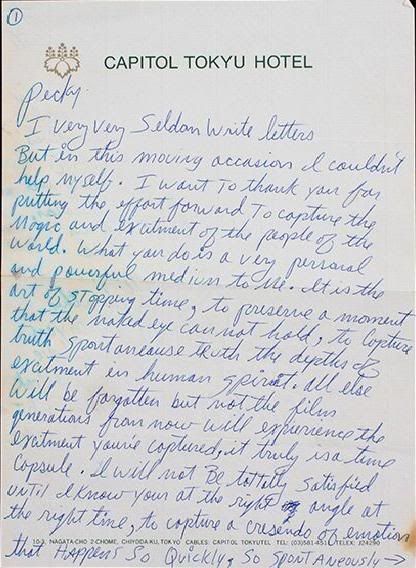 1
CAPITOL TOKYU HOTEL
Pecky
I very very Seldon write letters
But in this moving occasion I couldn't
help myself. I want to thank you for
putting the effort forward To capture the
Magic and excitment of the people of the
world. What you do is a very personal
and powerful medium to use. It is the
art of stopping time, to preserve a moment
that the naked eye can not hold, to capture
truth spontaneause truth the depths of
excitment in human spirit. all else
will be forgotten but not the film
generations from now will experience the
excitment you've captured, it truly is a time
Capsule. I will not Be tottaly satisfied
until I know your at the right angle at
the right time, to capture a cresendo of emotion
10-3, NAGATA-CHO 2-CHOME, CHIYODA-KU, TOKYO CABLES: CAPITOL TOKYUTEL TEL: (03)581-4511 TELEX: J24290
that Happens So Quickly, So Spontaneously →